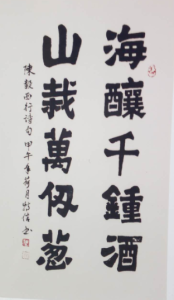 海釀千鍾酒
山栽萬仭葱
陳毅西行詩句甲午年荷月